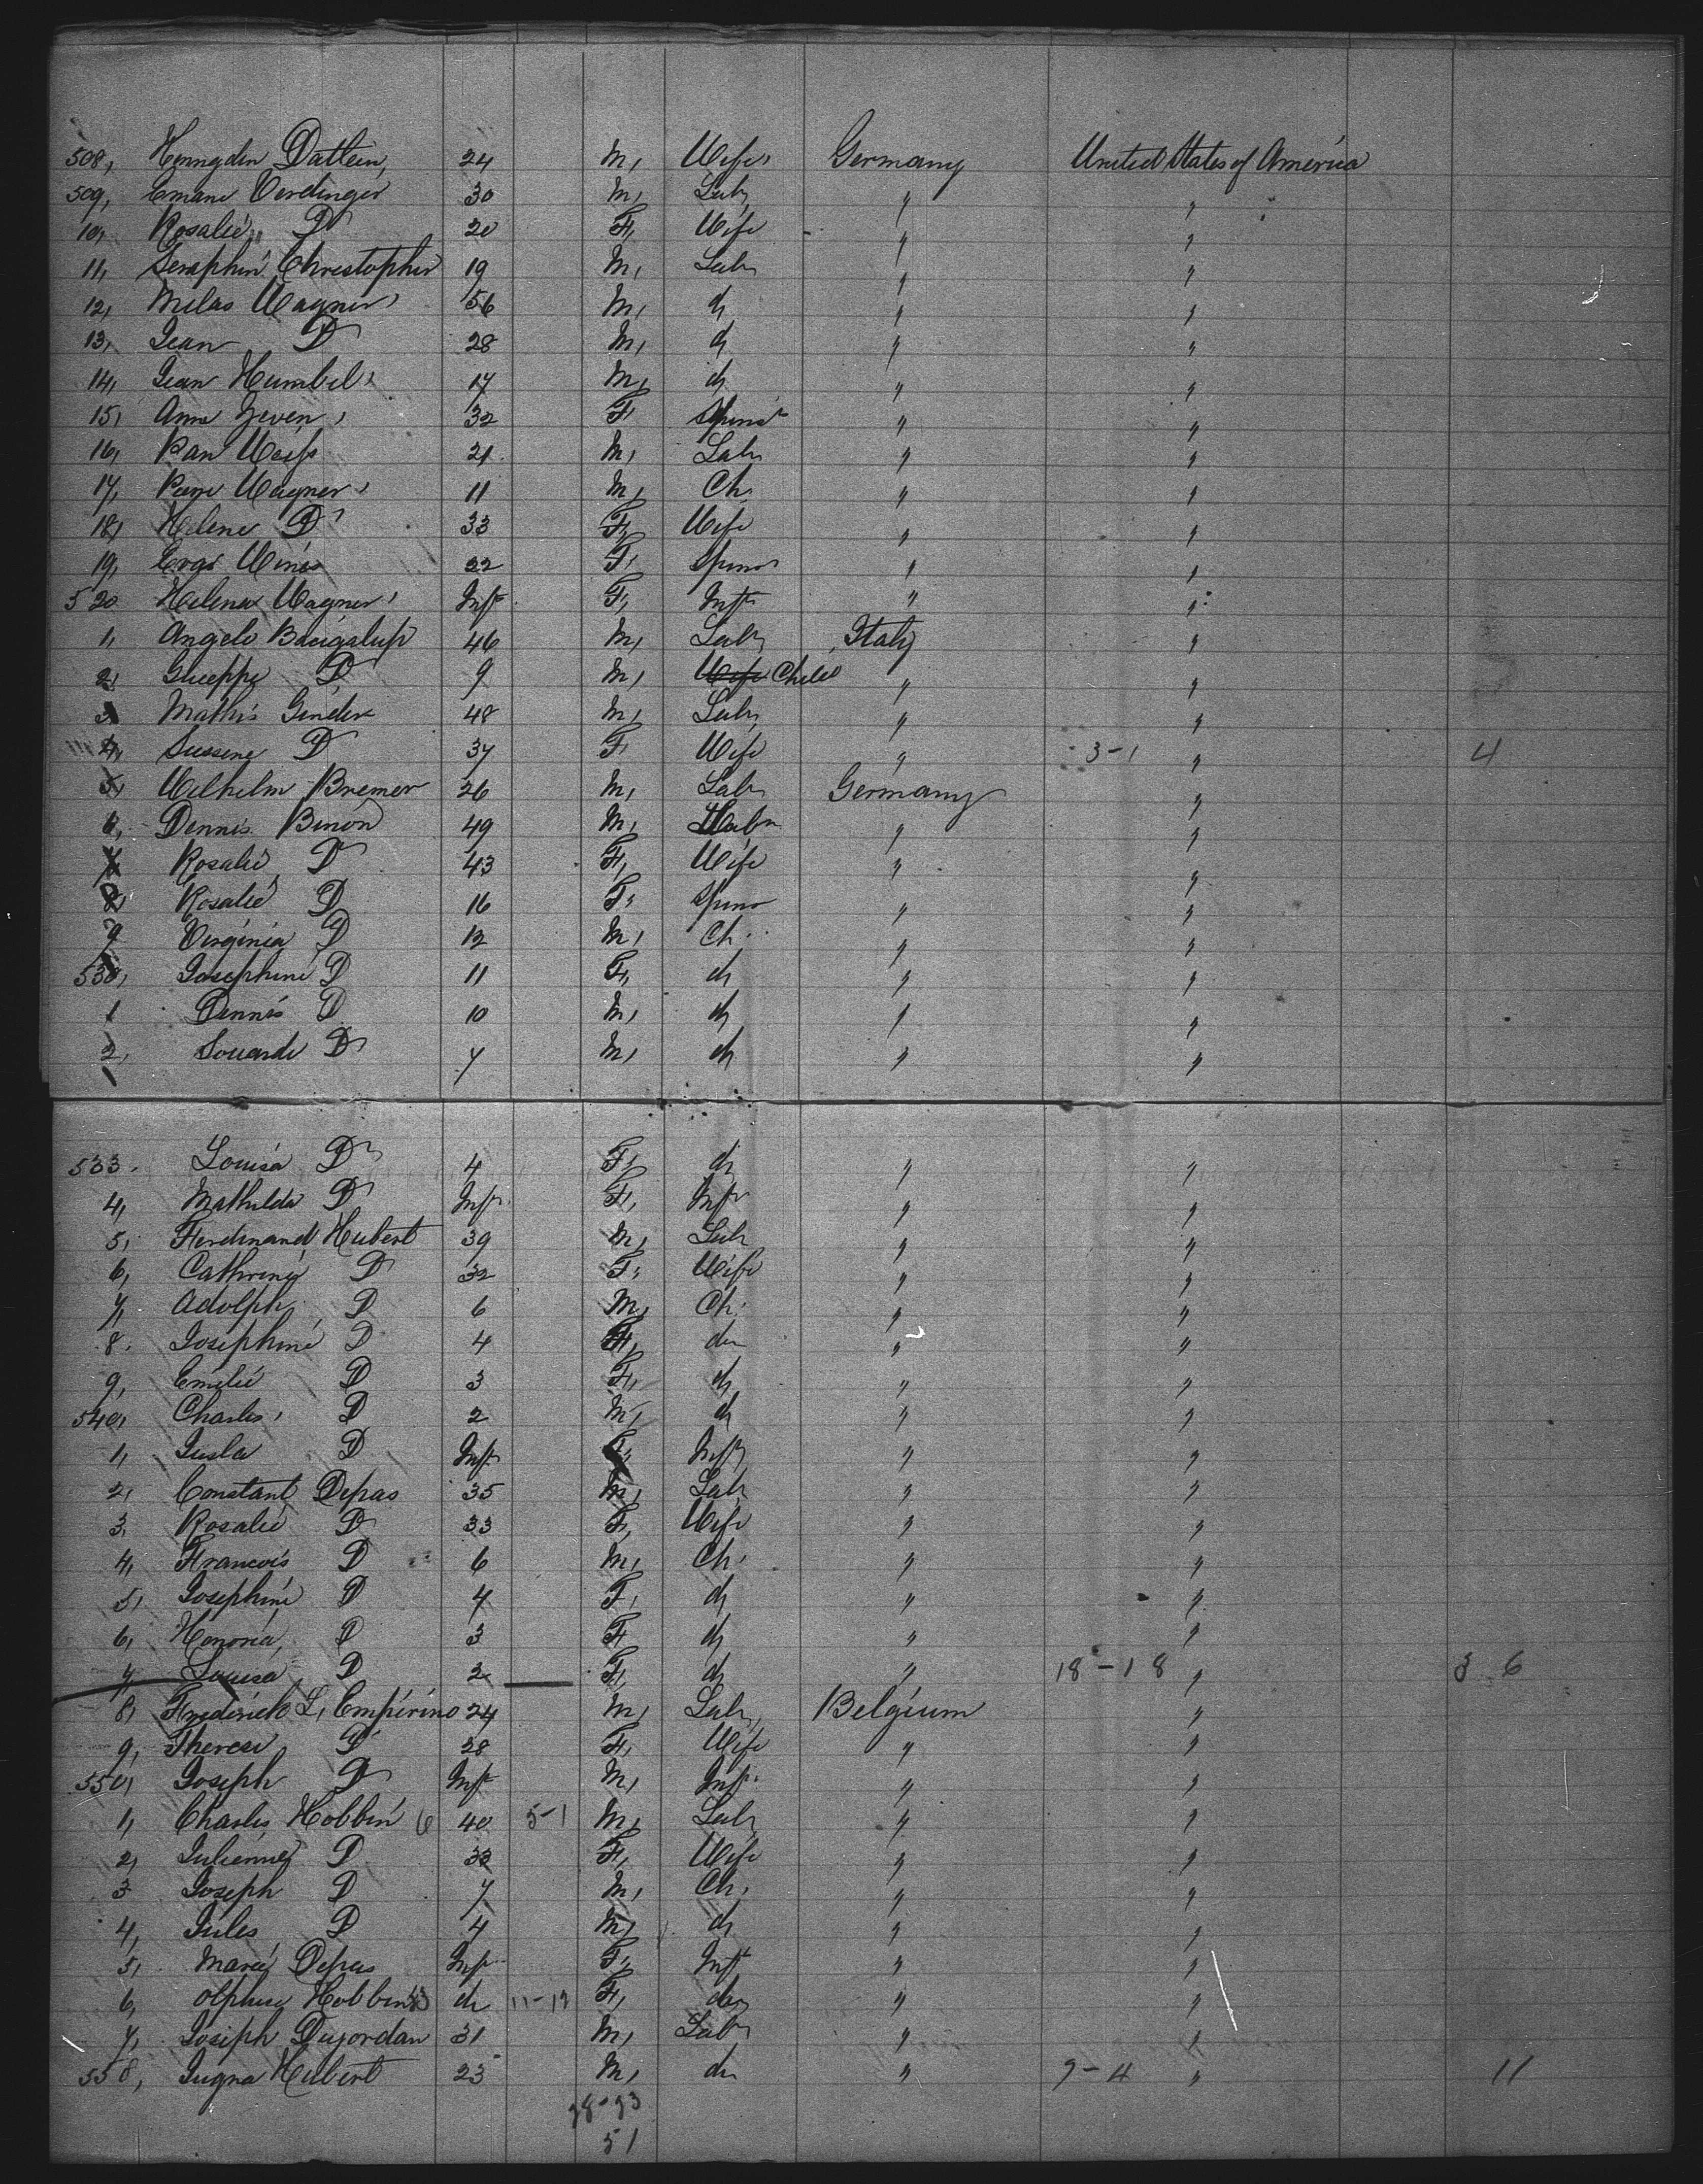 508, Henngdin Dattein, 24 M, Wife, Germany United States of America
509, Emane Verdinger 30 M, Labr " "
10, Rosalie, D 20 F, Wife " "
11, Seraphin Christopher 19 M, Labr " "
12, Wagner, 56 M, do " "
13, Jean D 28 M, do " "
14, Jean Humbel, 17 M, do " "
15, Anna 32 F, Spinst " "
16, 21 M, Labr " "
17, Wagner, 11 M, Ch. " "
18, Helene D 33 F, Wife " "
19, 22 F, Spinst " "
520 Helena Wagner, Inft F, Inft " "
1, Angelo Bacigalup 46 M, Labr Italy "
2, Giueppe D 9 M, Child " "
3, Mathis Ginder 48 M, Labr " "
4, Sussene D 37 F, Wife " 3-1 " 4
5, Wilhelm Bremer 26 M, Labr Germany "
6, Dennis Binon 49 M, Labr " "
7, Rosalie, D 43 F, Wife " "
8, Rosalie D 16 F, Spinr " "
9 Virginia D 12 M, Ch. " "
530, Josephine D 11 F, do " "
1 Dennis D 10 M, do " "
2, D 7 M, do " "
533. Louisa D 4 F, do " "
4, Mathilda D Inft F, Inft " "
5, Ferdinand Hubert 39 M, Labr " "
6, Cathrine D 32 F, Wife " "
7, Adolph, D 6 M, Ch. " "
8. Josephine D 4 F, do " "
9, Emilie D 3 F, do " "
540, Charles, D 2 M, do " "
1, D Inft F, Inft " "
2, Constant Depas 35 M, Labr " "
3, Rosalie D 33 F, Wife " "
4, Francois D 6 M, Ch. " "
5, Josephine D 4 F, do " "
6, Honoria, D 3 F, do " "
7, Louisa D 2 F, do " 18-18 " 36
8, Frederick L, Empirino 24 M, Labr, Belgium "
9, Therese D 28 F, Wife " "
550, Joseph D Inft M, Inft " "
1, Charles Hobbin 6 40 5-1 M, Labr " "
2, Julienne D 33 F, Wife " "
3 Joseph D 7 M, Ch. " "
4, Jules D 4 M, do " "
5, Marie Depas Inft F, Inft " "
6, Hobbin do 11-12 F, do " "
7, Joseph Dujordan 31 M, Labr " "
558, Hubert 23 M, do " 7-4 " 11
28-23
51